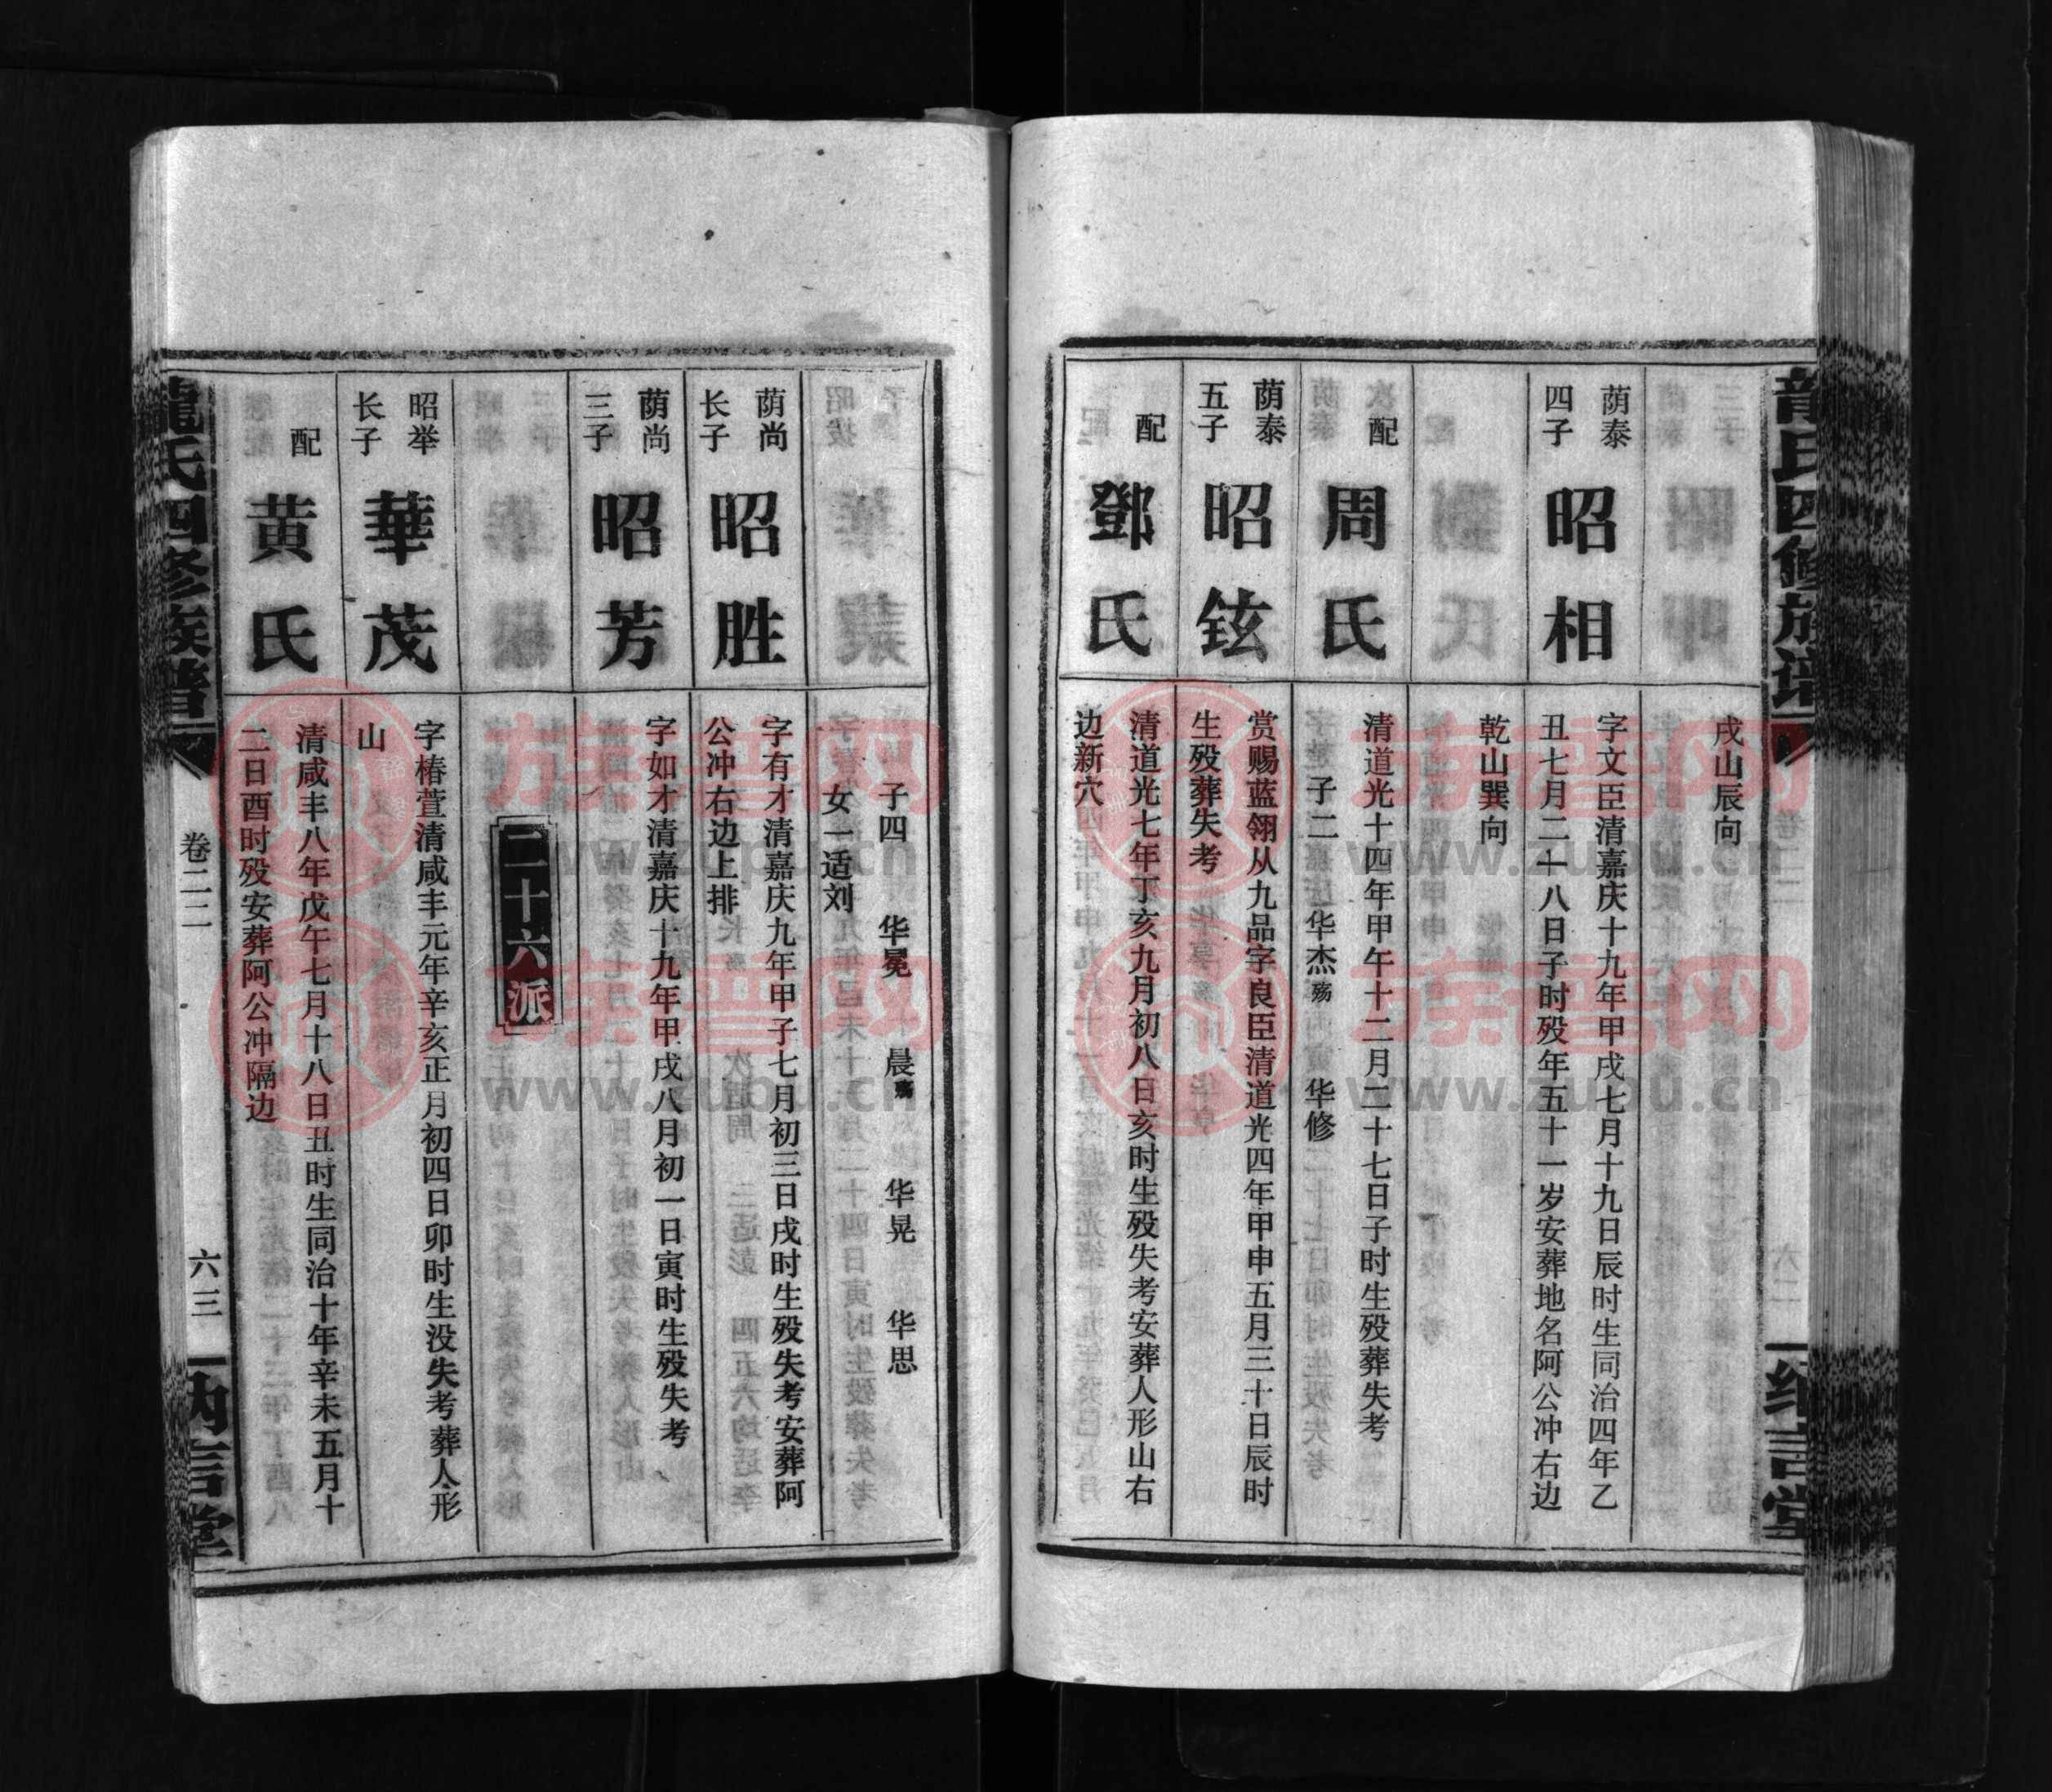 戌山辰向
荫泰
四子
昭相
字文臣清嘉庆十九年甲戌七月十九日辰时生同治四年乙
丑七月二十八日子时殁年五十一岁安葬地名阿公冲右边
乾山巽向
配
周氏
清道光十四年甲午十二月二十七日子时生殁葬失考
子二 华杰殇 华修
荫泰
五子
昭铉
赏赐蓝翎从九品字良臣清道光四年甲申五月三十日辰时
生殁葬失考
配
鄧氏
清道光七年丁亥九月初八日亥时生殁失考安葬人形山右
边新穴
子四 华冕 晨殇 华晃 华思
女一适刘
荫尚
长子
昭胜
字有才清嘉庆九年甲子七月初三日戌时生殁失考安葬阿
公冲右边上排
荫尚
三子
昭芳
字如才清嘉庆十九年甲戌八月初一日寅时生殁失考
二十六派
昭举
长子
華茂
字椿萱清咸丰元年辛亥正月初四日卯时生没失考葬人形
山
配
黄氏
清咸丰八年戊午七月十八日丑时生同治十年辛未五月十
二日酉时殁安葬阿公冲隔边
龍氏四修族譜
卷二二
六三
纳言堂
族谱网
www.zupu.cn